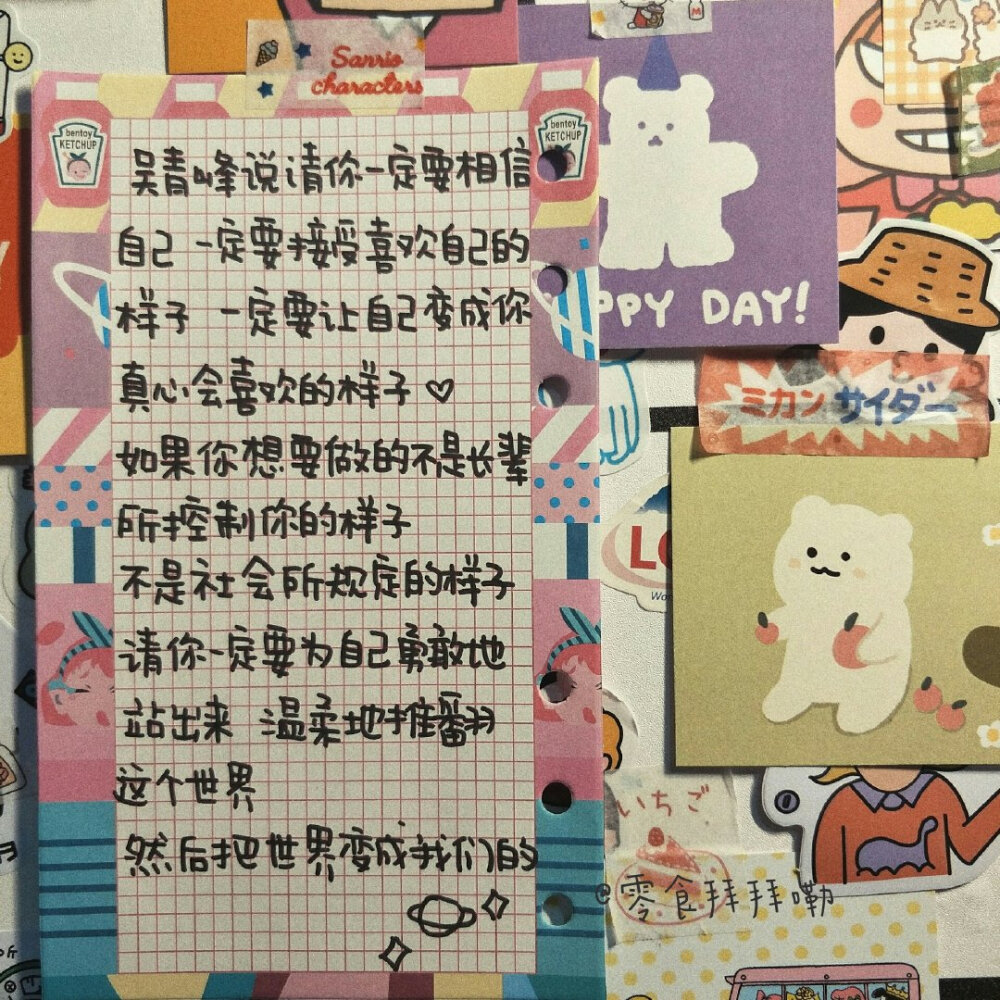 Sanrio
characters
bentoy
KETCHUP
bentoy
KETCHUP
吴青峰说请你一定要相信
自己 一定要接受喜欢自己的
样子 一定要让自己变成你
真心会喜欢的样子♡
如果你想要做的不是长辈
所控制你的样子
不是社会所规定的样子
请你一定要为自己勇敢地
站出来 温柔地推翻
这个世界
然后把世界变成我们的
PPY DAY!
ミカンサイダー
いちご
@零食拜拜嘞